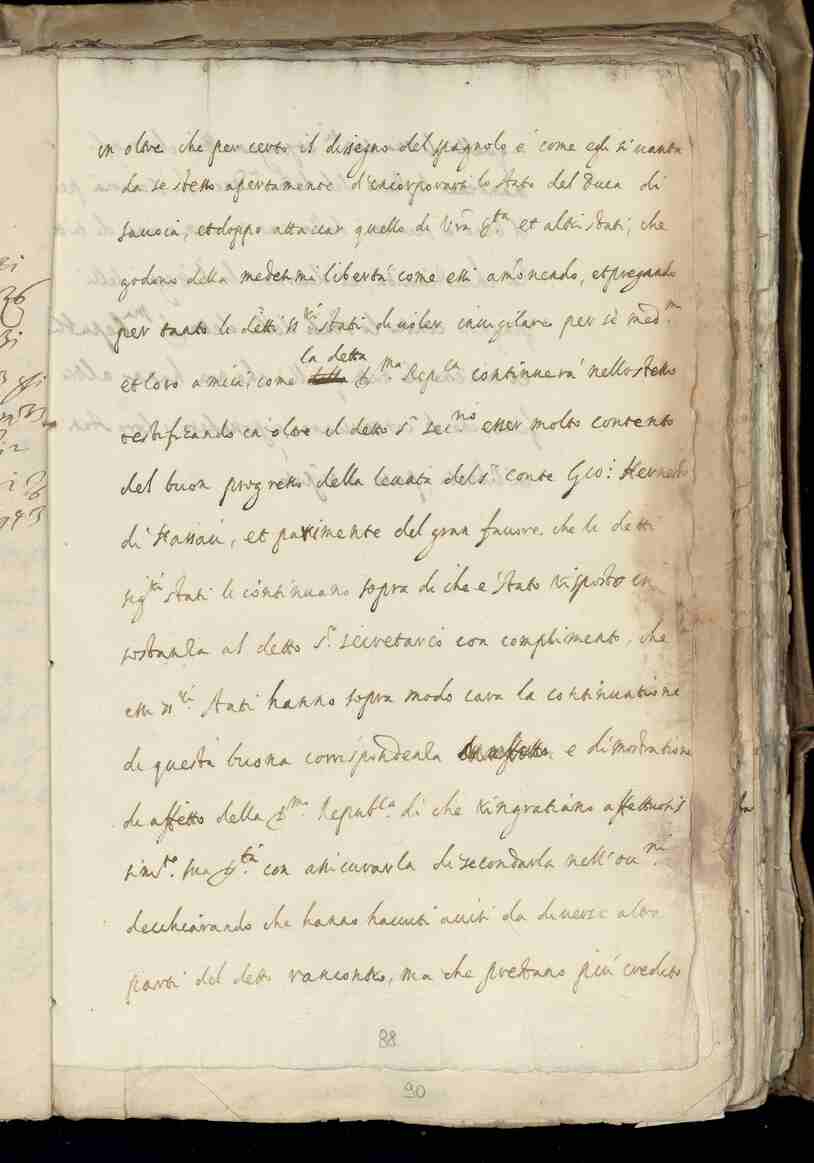 in oltre che per certo il dissegno del spagnolo e' come egli si uanta
da se stesso apertamente d'incorporarsi lo stato del Duca di
Sauoia, et doppo attaccar quello di Vra S.ta et altri stati, che
godono della medesma libertà come essi amoneado, et pregando
per tanto li detti Ss.ri stati di uoler inuigilare per sè med.mi
et loro amici, come la detta S.ma Rep.ca continuerà nello stesso
testificando in oltre il detto S.r Sec.rio esser molto contento
del buon progresso della leuata del S.r conte Gio: Hernesto
di Nassau, et parimente del gran fauore che li detti
sig.ri stati li continuano sopra di che e' stato risposto in
sostanza al detto S.r secretario con complimento, che
essi Ss.ri stati hanno sopra modo cara la continuatione
di questa buona corrispondenza e dimostratione
di affetto della S.ma Repub.ca di che ringratiano affettuosis
sim.te sua S.tà con assicurarla di secondarla nell' ou.ni
decchiarando che hanno hauuti auisi da diuerse altre
parti del detto racconto, ma che prestano più credito
la
88
90